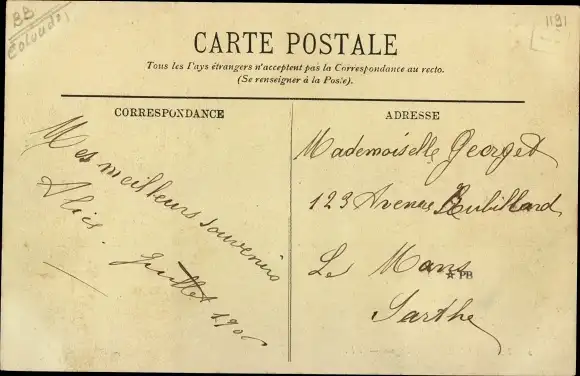 BB
Calvados
1191
CARTE POSTALE
Tous les Pays étrangers n'acceptent pas la Correspondance au recto.
(Se renseigner à la Poste).
CORRESPONDANCE
Mes meilleurs souvenirs
Alice.
Juillet 190
ADRESSE
Mademoiselle Georget
123 Avenue Rubillard
Le Mans
☆ PB
Sarthe